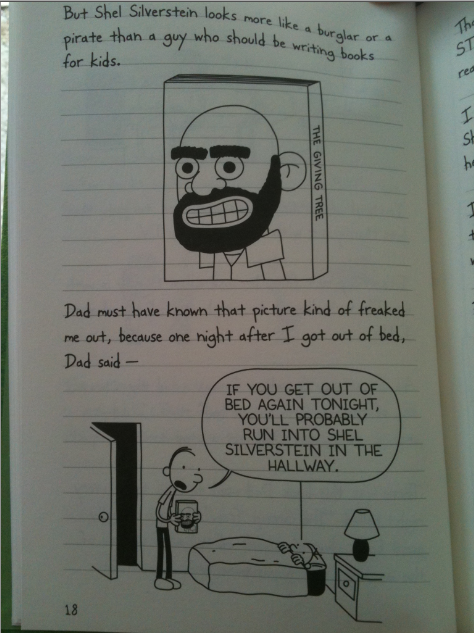 But Shel Silverstein looks more like a burglar or a
pirate than a guy who should be writing books
for kids.
THE GIVING TREE
Dad must have known that picture kind of freaked
me out, because one night after I got out of bed,
Dad said —
IF YOU GET OUT OF
BED AGAIN TONIGHT,
YOU'LL PROBABLY
RUN INTO SHEL
SILVERSTEIN IN THE
HALLWAY.
18